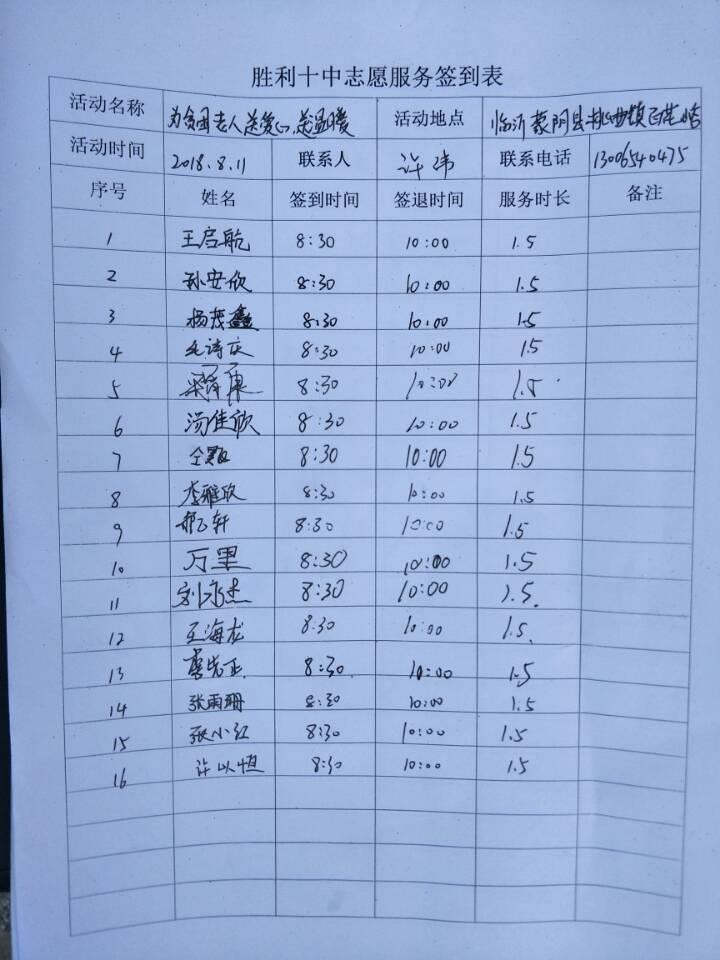 胜利十中志愿服务签到表
活动名称 为贫困老人送爱心,送温暖 活动地点 临沂蒙阴县桃曲镇百花峪
活动时间 2018.8.11 联系人 许伟 联系电话 13006540475
序号 姓名 签到时间 签退时间 服务时长 备注
1 王启航 8:30 10:00 1.5
2 孙安欣 8:30 10:00 1.5
3 杨茂鑫 8:30 10:00 1.5
4 8:30 10:00 1.5
5 8:30 10:00 1.5
6 汤佳欣 8:30 10:00 1.5
7 8:30 10:00 1.5
8 李雅欣 8:30 10:00 1.5
9 8:30 10:00 1.5
10 万里 8:30 10:00 1.5
11 刘永杰 8:30 10:00 1.5
12 王海龙 8:30 10:00 1.5
13 8:30 10:00 1.5
14 张雨珊 8:30 10:00 1.5
15 张小红 8:30 10:00 1.5
16 许以恒 8:30 10:00 1.5